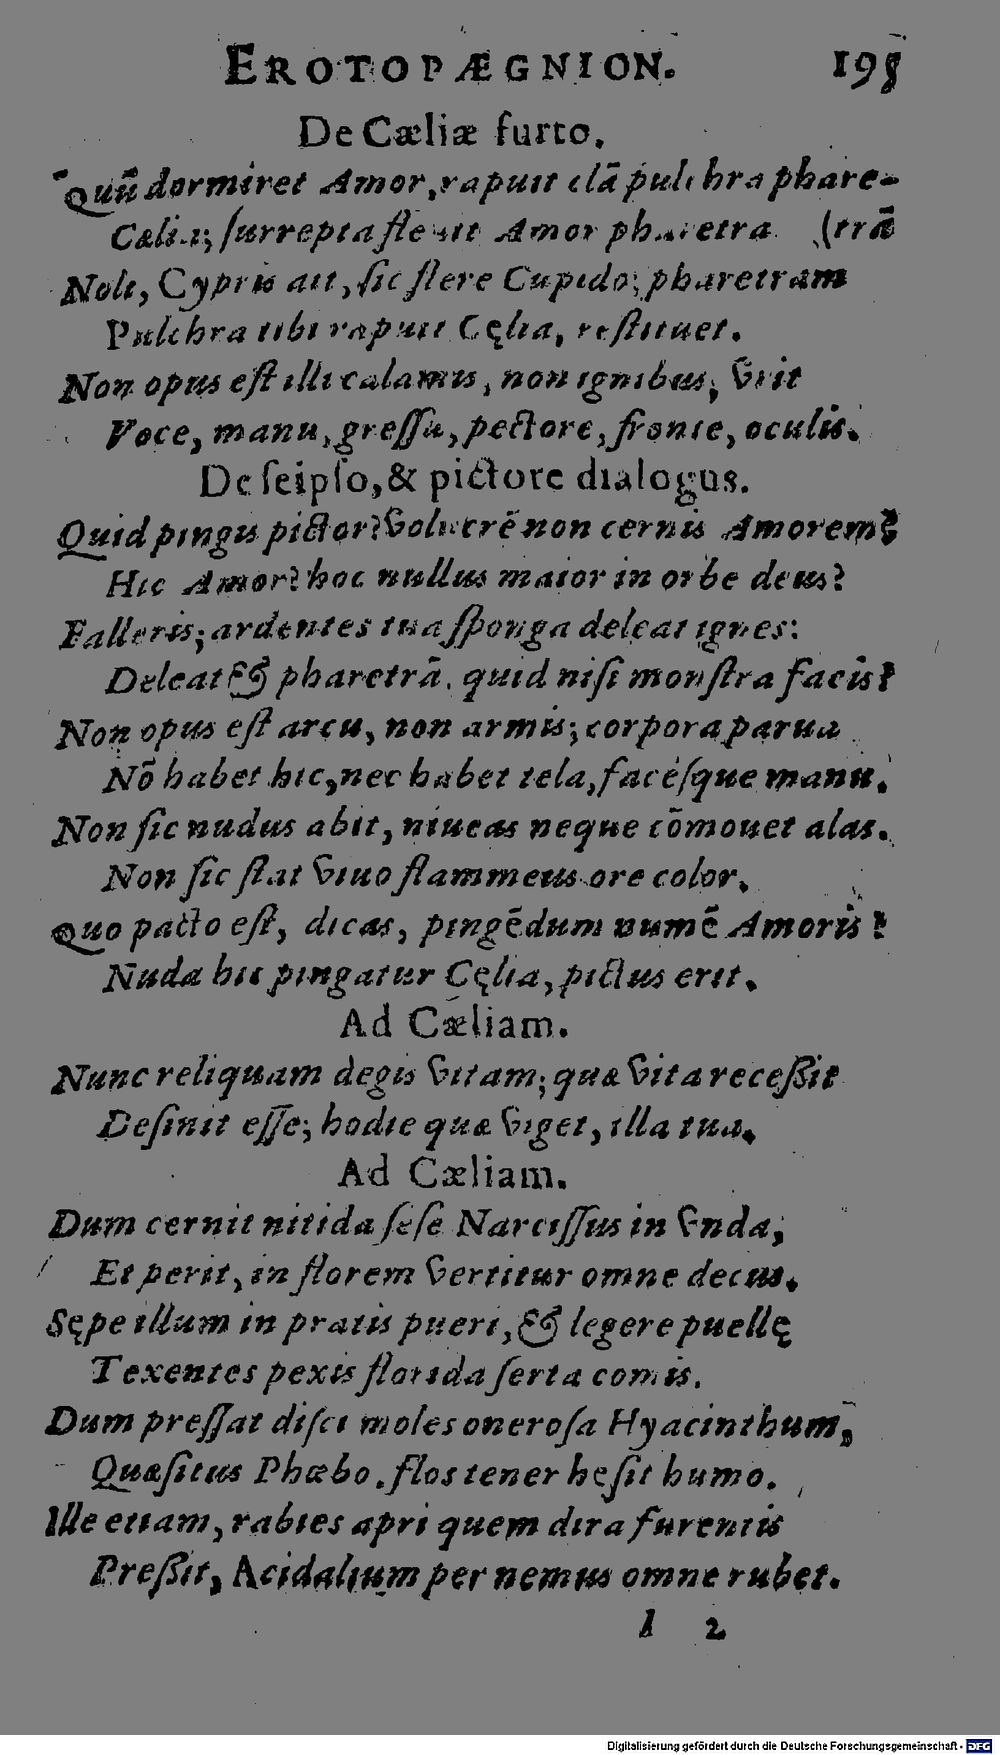 EROTOPÆGNION. 195
De Cæliæ furto.
Quū dormiret Amor, rapuit clā pulchra phare-
Cælia; ſurrepta fleuit Amor pharetra (trā
Noli, Cypris ait, ſic flere Cupido; pharetram
Pulchra tibi rapuit Cęlia, reſtituet.
Non opus eſt illi calamis, non ignibus; vrit
Voce, manu, greſſu, pectore, fronte, oculis.
De ſeipſo, & pictore dialogus.
Quid pingis pictor? volucrē non cernis Amorem?
Hic Amor? hoc nullus maior in orbe deus?
Falleris; ardentes tua ſponga deleat ignes:
Deleat & pharetrā. quid niſi monſtra facis?
Non opus eſt arcu, non armis; corpora parua
Nō habet hic, nec habet tela, facéſque manu.
Non ſic nudus abit, niueas neque cōmouet alas.
Non ſic ſtat viuo flammeus ore color.
Quo pacto eſt, dicas, pingēdum numē Amoris?
Nuda hic pingatur Cęlia, pictus erit.
Ad Cæliam.
Nunc reliquam degis vitam; quæ vita receßit
Deſinit eſſe; hodie quæ viget, illa tua.
Ad Cæliam.
Dum cernit nitida ſeſe Narciſſus in vnda,
Et perit, in florem vertitur omne decus.
Sępe illum in pratis pueri, & legere puellę
Texentes pexis florida ſerta comis.
Dum preſſat diſci moles oneroſa Hyacinthum,
Quæſitus Phœbo. flos tener hęſit humo.
Ille etiam, rabies apri quem dira furentis
Preßit, Acidalium per nemus omne rubet.
l 2
Digitalisierung gefördert durch die Deutsche Forschungsgemeinschaft - DFG